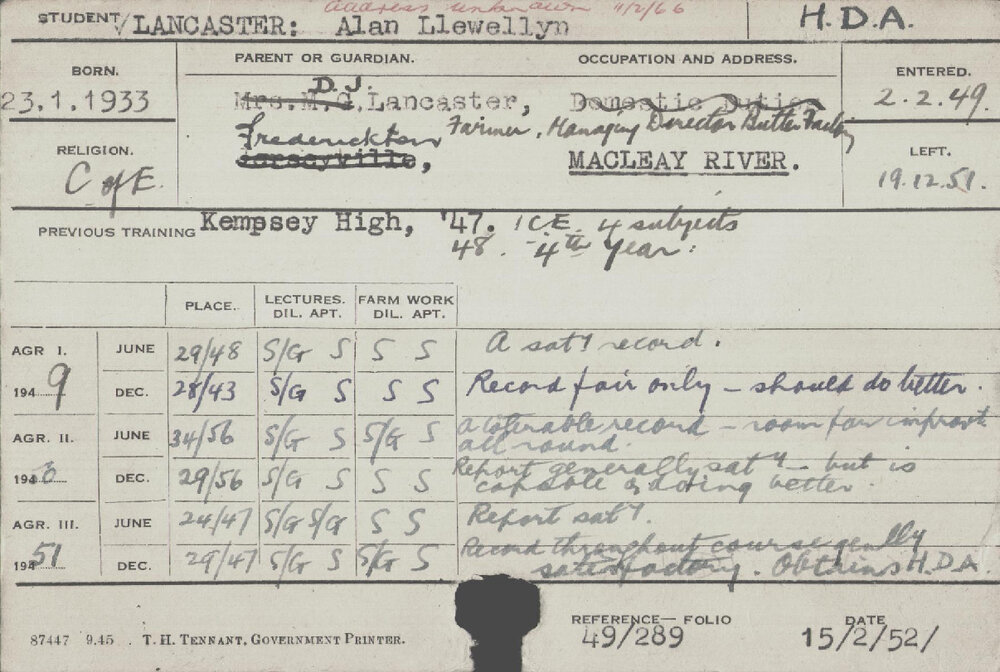 address unknown 11/2/66
STUDENT √LANCASTER: Alan Llewellyn H.D.A.
BORN. PARENT OR GUARDIAN. OCCUPATION AND ADDRESS. ENTERED.
23.1.1933 Mrs. M. G. D.J. Lancaster, Domestic Duties 2.2.49.
Frederickton Farmer, Managing Director Butter Factory
RELIGION. Jerseyville, MACLEAY RIVER. LEFT.
C of E. 19.12.51.
PREVIOUS TRAINING Kempsey High, '47. ICE. 4 subjects
48. 4th Year.
PLACE. LECTURES. DIL. APT. FARM WORK DIL. APT.
AGR I. JUNE 29/48 S/G S S S A saty record.
1949 DEC. 28/43 S/G S S S Record fair only – should do better.
AGR. II. JUNE 34/56 S/G S S/G S a tolerable record – room for improvt
all round.
1950 DEC. 29/56 S/G S S S Report generally saty – but is
capable of doing better.
AGR. III. JUNE 24/47 S/G S/G S S Report saty.
1951 DEC. 29/47 S/G S S/G S Record throughout course genlly
satisfactory. Obtains H.D.A.
REFERENCE— FOLIO DATE
87447 9.45 . T. H. TENNANT, GOVERNMENT PRINTER. 49/289 15/2/52/